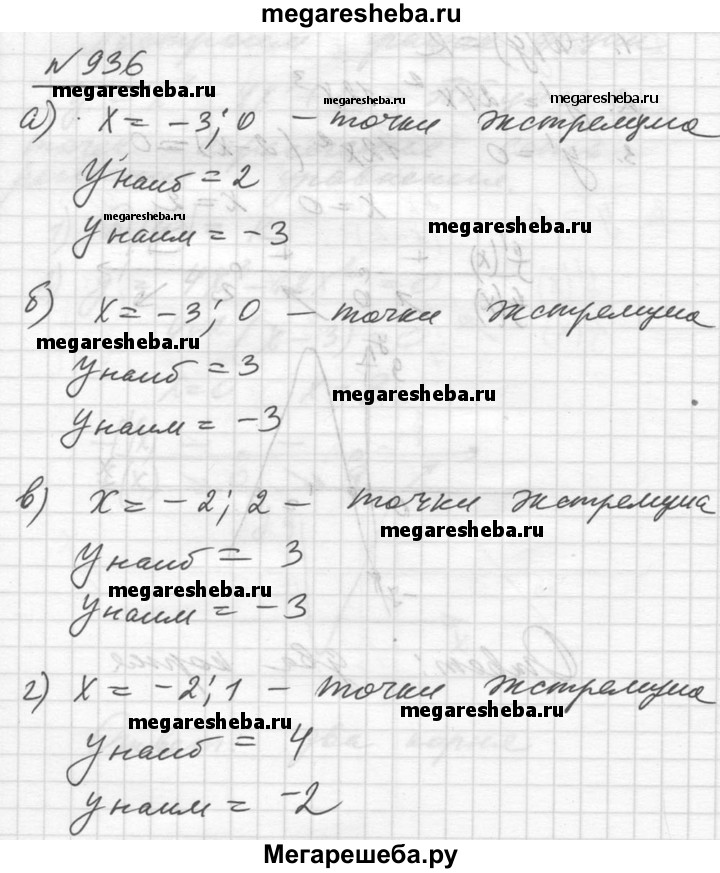 megaresheba.ru
№ 936
megaresheba.ru
megaresheba.ru
megaresheba.ru
а) x = -3; 0 - точки экстремума
У наиб = 2
megaresheba.ru
У наим = -3
megaresheba.ru
б) x = -3; 0 - точки экстремума
megaresheba.ru
У наиб = 3
megaresheba.ru
У наим = -3
в) x = -2; 2 - точки экстремума
megaresheba.ru
У наиб = 3
megaresheba.ru
У наим = -3
г) x = -2; 1 - точки экстремума
megaresheba.ru
megaresheba.ru
У наиб = 4
У наим = -2
Мегарешеба.ру